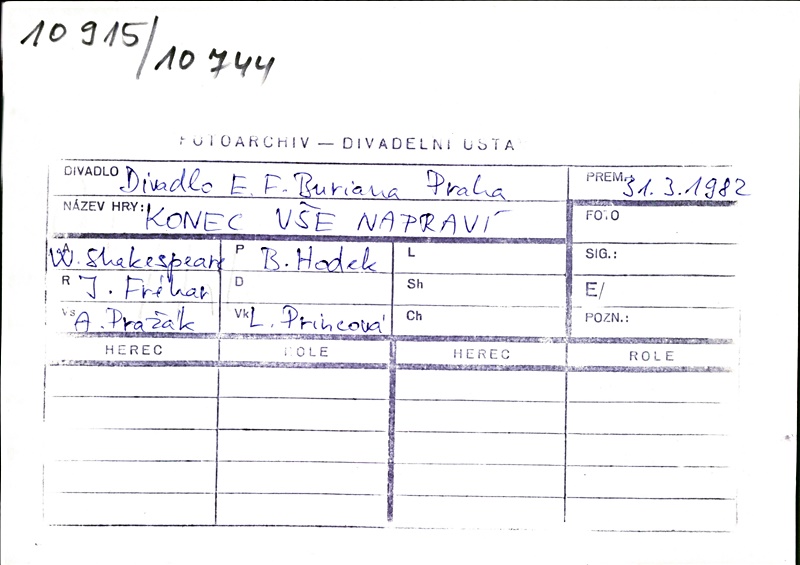 10 915/10 744
FOTOARCHIV — DIVADELNÍ ÚSTA
DIVADLO Divadlo E. F. Buriana Praha PREM.: 31.3.1982
NÁZEV HRY: KONEC VŠE NAPRAVÍ FOTO
A W. Shakespeare P B. Hodek L SIG.:
R J. Fréhar D Sh E/
Vs A. Pražák Vk L. Princová Ch POZN.:
HEREC ROLE HEREC ROLE